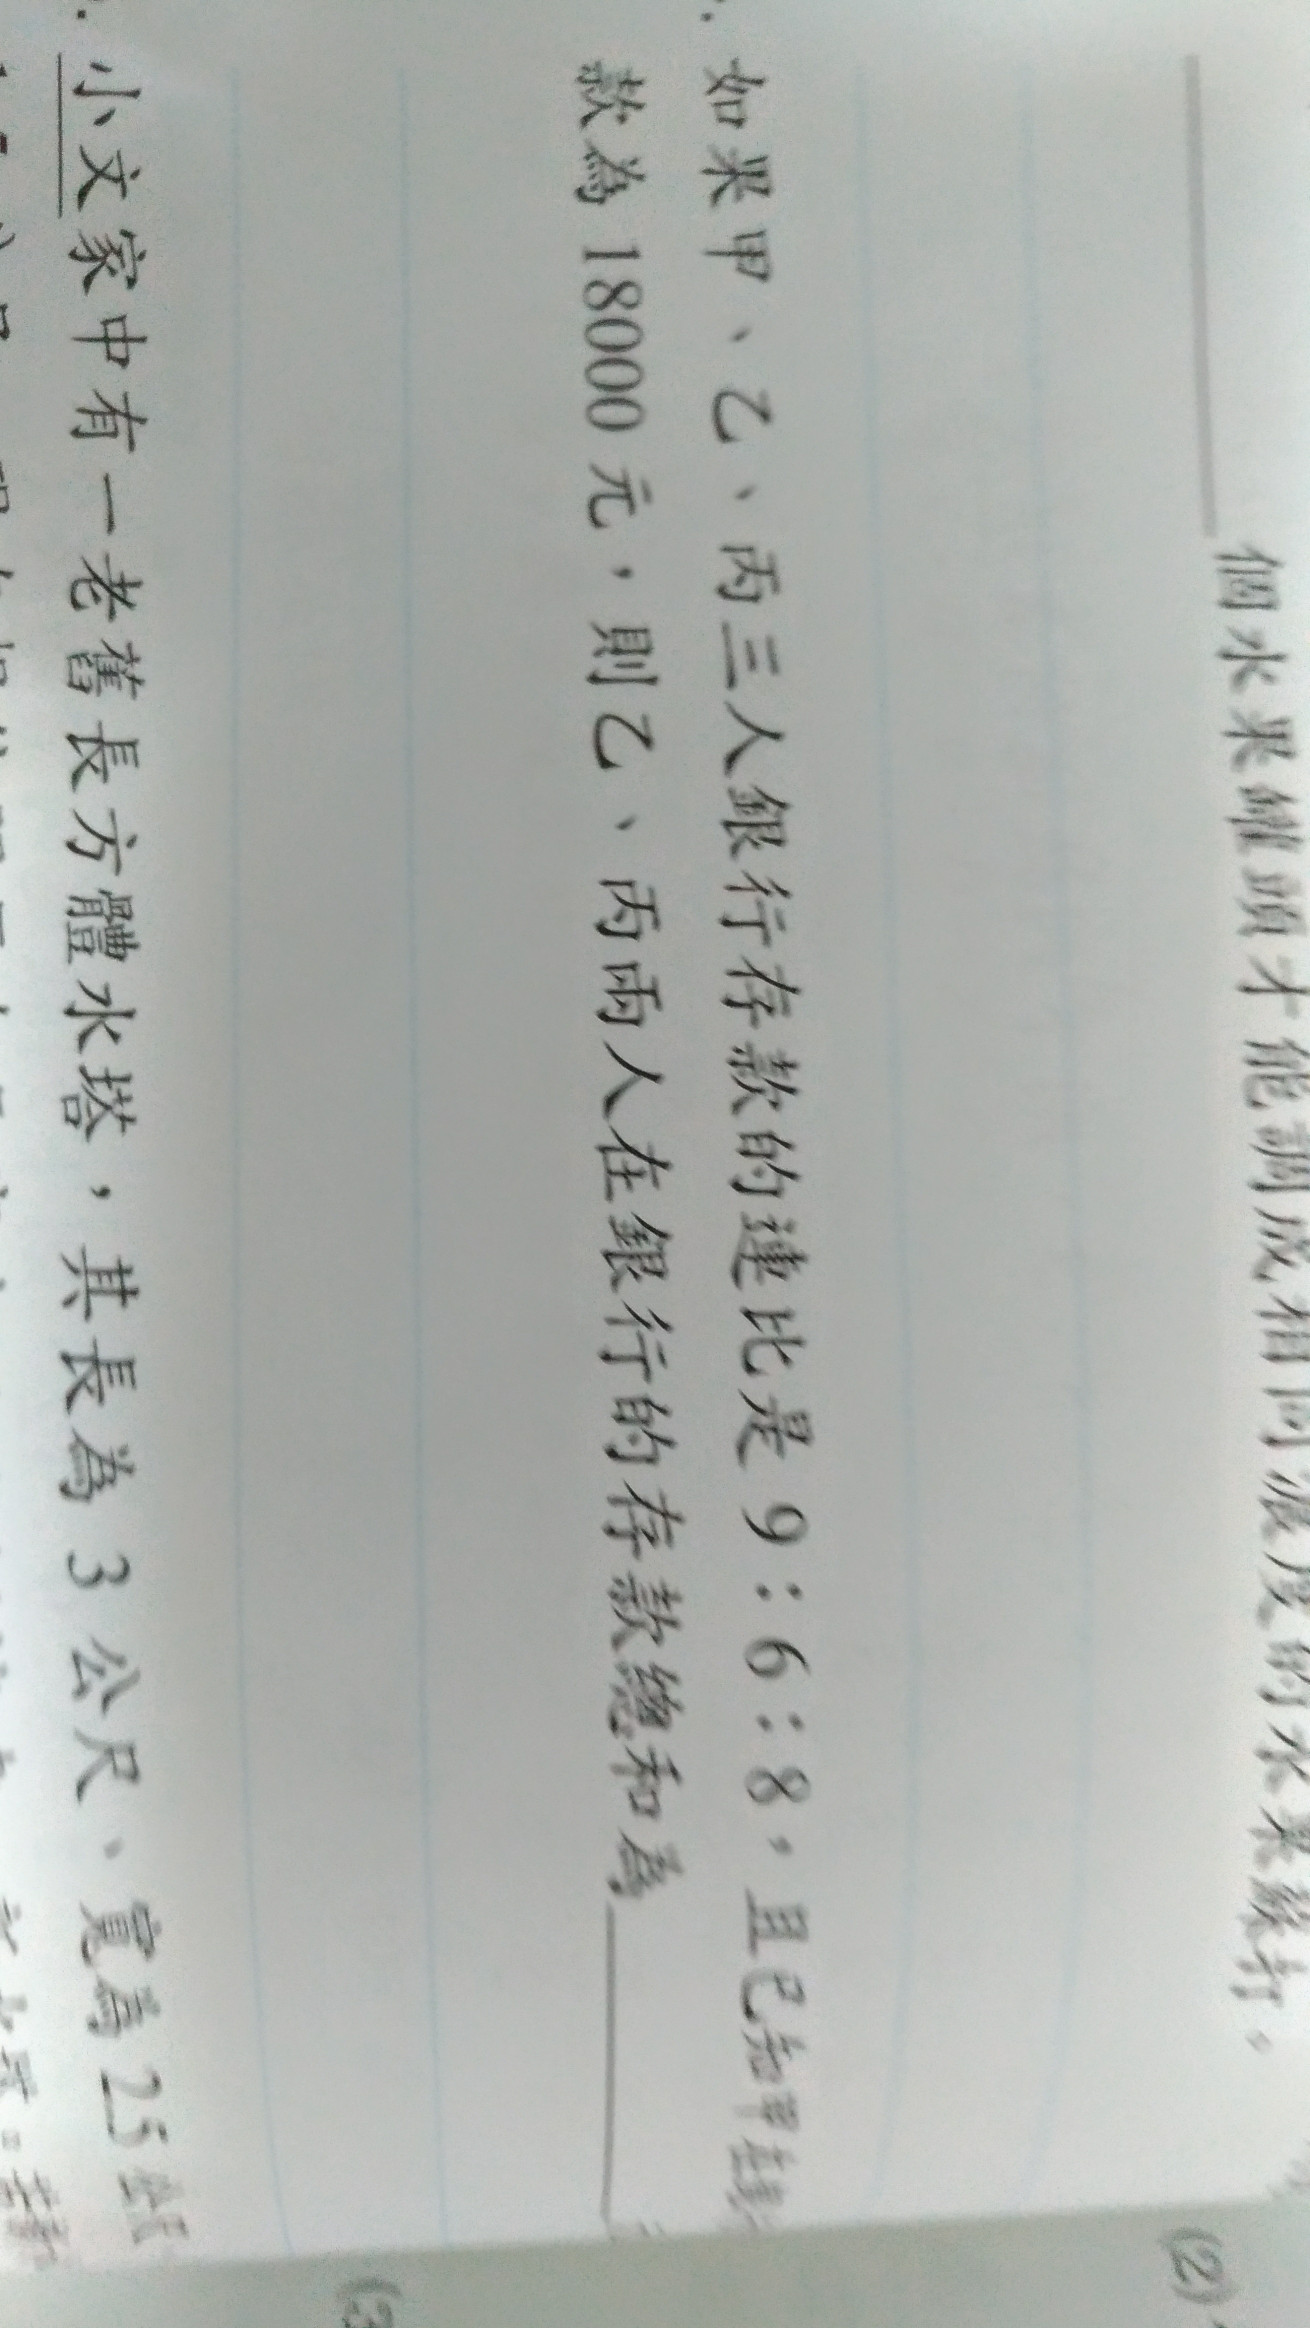 個水果罐頭才能調成相同濃度的水果綜打。
(2)
如果甲、乙、丙三人銀行存款的連比是 9：6：8，且已知甲在
款為 18000 元，則乙、丙兩人在銀行的存款總和為
(3
小文家中有一老舊長方體水塔，其長為 3 公尺、寬為 2.5